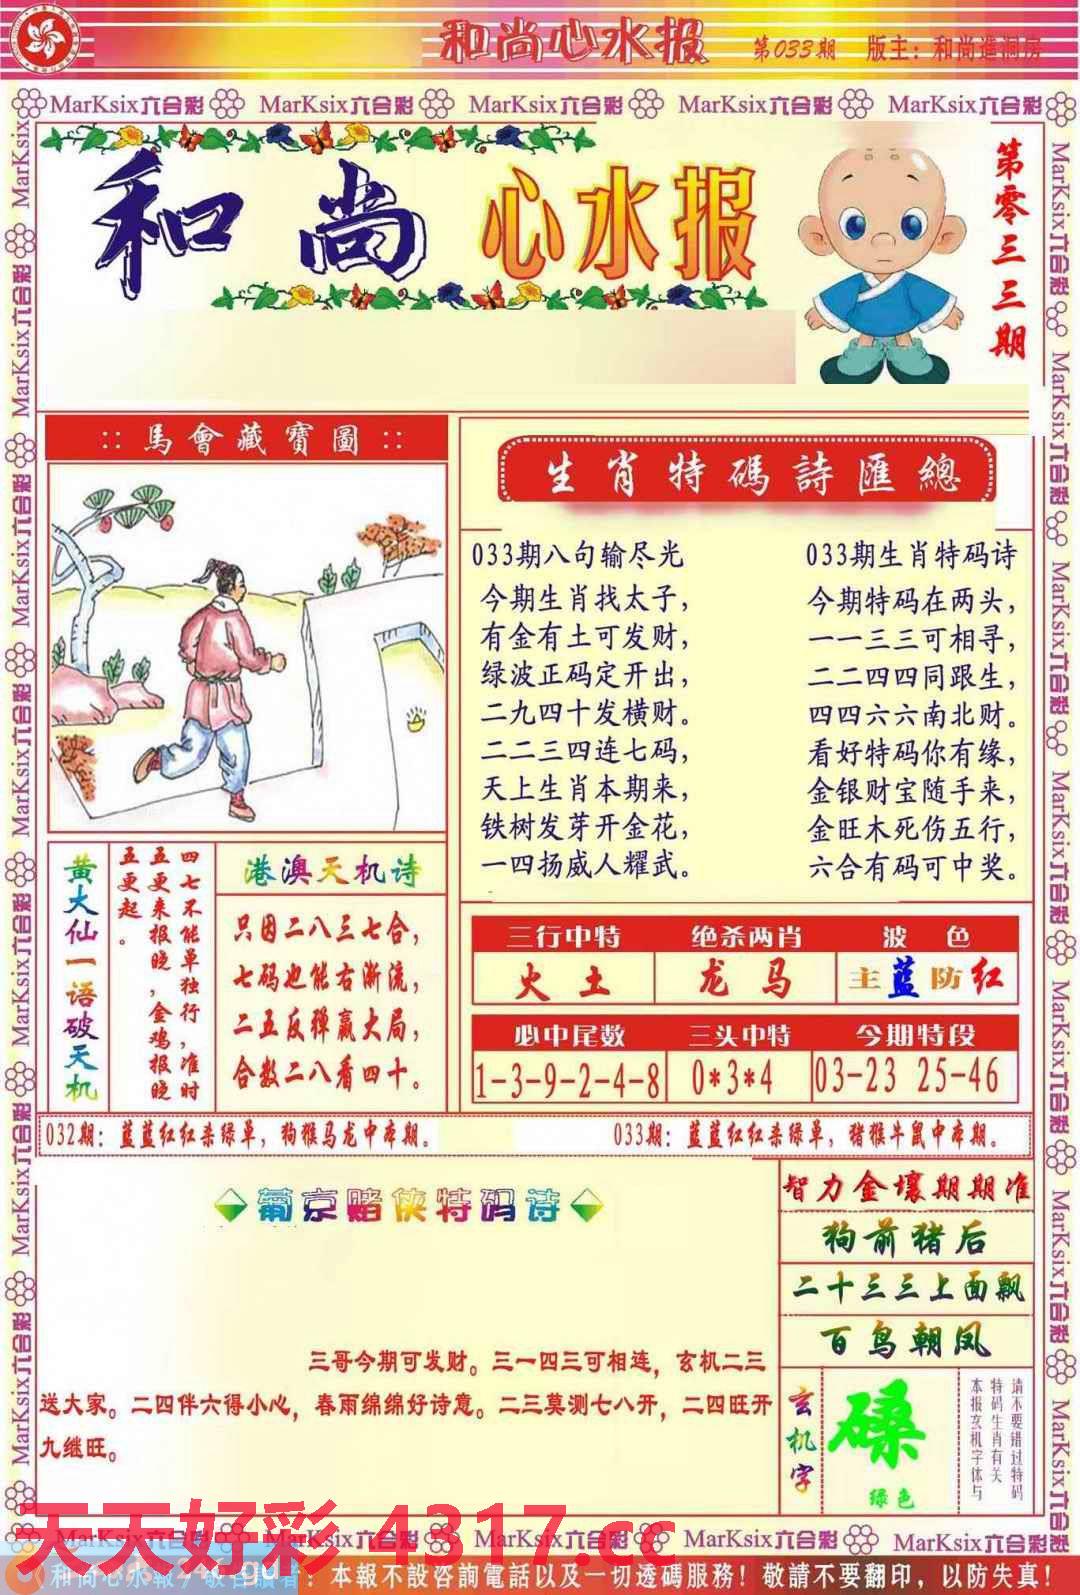 和尚心水报 第033期 版主：和尚進洞房
MarKsix六合彩 MarKsix六合彩 MarKsix六合彩 MarKsix六合彩 MarKsix六合彩
和尚心水报
第零三三期
::馬會藏寶圖::
生肖特碼詩匯總
033期八句输尽光
今期生肖找太子，
有金有土可发财，
绿波正码定开出，
二九四十发横财。
二二三四连七码，
天上生肖本期来，
铁树发芽开金花，
一四扬威人耀武。
033期生肖特码诗
今期特码在两头，
一一三三可相寻，
二二四四同跟生，
四四六六南北财。
看好特码你有缘，
金银财宝随手来，
金旺木死伤五行，
六合有码可中奖。
黄大仙一语破天机
四七不能单独行，准时
五更来报晓，金鸡报晓
五更起。
港澳天机诗
只因二八三七合，
七码也能右渐流，
二五反弹赢大局，
合数二八看四十。
三行中特 绝杀两肖 波色
火土 龙马 主蓝防红
必中尾数 三头中特 今期特段
1-3-9-2-4-8 0*3*4 03-23 25-46
032期：蓝蓝红红杀绿单，狗猴马龙中本期。
033期：蓝蓝红红杀绿单，猪猴牛鼠中本期。
葡京赌侠特码诗
三哥今期可发财。三一四三可相连，玄机二三
送大家。二四伴六得小心，春雨绵绵好诗意。二三莫测七八开，二四旺开
九继旺。
智力金壤期期准
狗前猪后
二十三三上面飘
百鸟朝凤
玄机字
磉
绿色
请不要错过特码
特码生肖有关
本报玄机字体与
天天好彩 4317.cc
MarKsix六合彩 MarKsix六合彩 MarKsix六合彩 MarKsix六合彩 MarKsix六合彩
和尚心水報 / 敬告讀者：本報不設咨詢電話以及一切透碼服務！敬請不要翻印，以防失真！